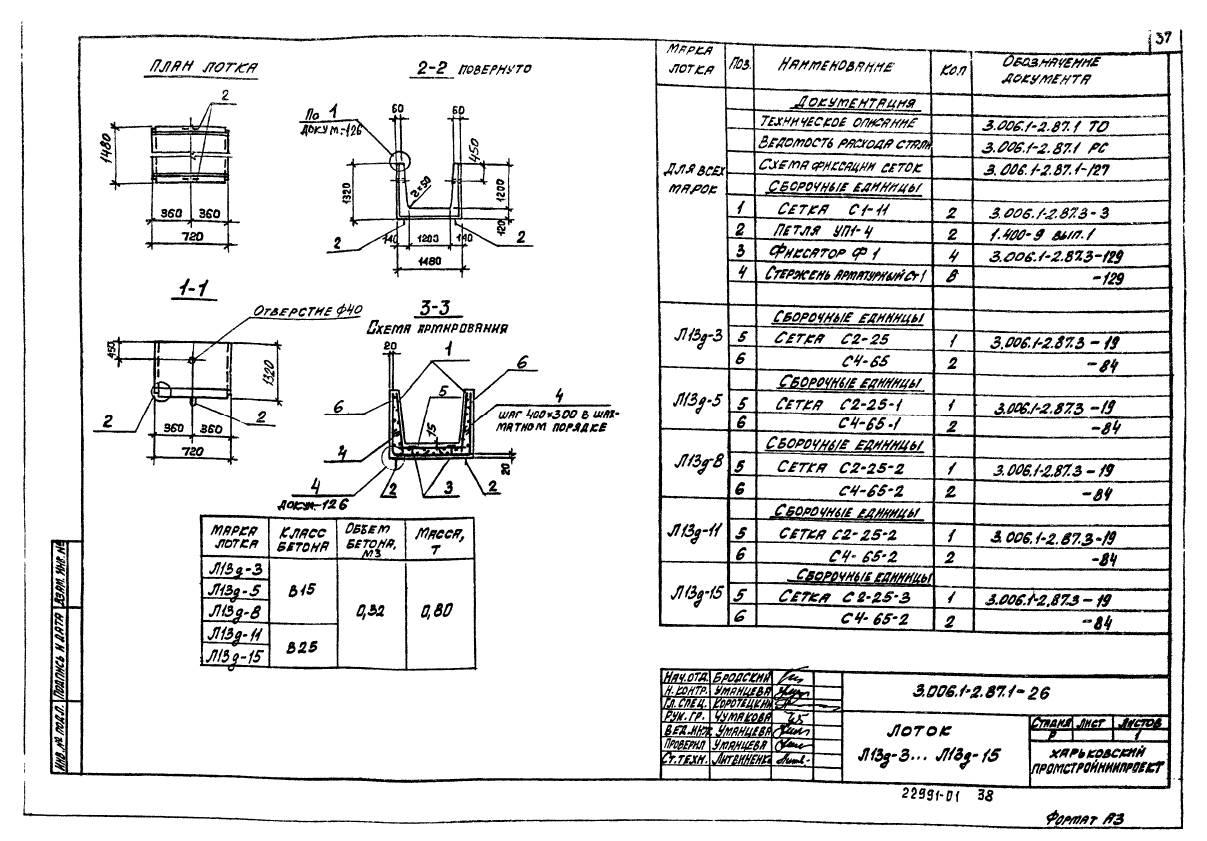 37
ПЛАН ЛОТКА
2
1480
360 360
720
2-2 ПОВЕРНУТО
По 1
ДОКУМ.-126
60 60
450
1320
R=50
1200
120
2 140 1200 140 2
1480
1-1
ОТВЕРСТИЕ Ф40
450
1320
2 2
360 360
720
3-3
СХЕМА АРМИРОВАНИЯ
20 1
6
5
6
4
ШАГ 400×300 В ШАХ-
МАТНОМ ПОРЯДКЕ
15
4
20
4 2 3 2
ДОКУМ.-126
МАРКА ЛОТКА КЛАСС БЕТОНА ОБЪЕМ БЕТОНА, М3 МАССА, Т
Л13д-3
Л13д-5 В15
Л13д-8 0,32 0,80
Л13д-11
Л13д-15 В25
МАРКА ЛОТКА ПОЗ. НАИМЕНОВАНИЕ КОЛ ОБОЗНАЧЕНИЕ ДОКУМЕНТА
ДОКУМЕНТАЦИЯ
ТЕХНИЧЕСКОЕ ОПИСАНИЕ 3.006.1-2.87.1 ТО
ВЕДОМОСТЬ РАСХОДА СТАЛИ 3.006.1-2.87.1 РС
ДЛЯ ВСЕХ МАРОК СХЕМА ФИКСАЦИИ СЕТОК 3.006.1-2.87.1-127
СБОРОЧНЫЕ ЕДИНИЦЫ
1 СЕТКА С1-11 2 3.006.1-2.87.3-3
2 ПЕТЛЯ УП1-4 2 1.400-9 ВЫП.1
3 ФИКСАТОР Ф1 4 3.006.1-2.87.3-129
4 СТЕРЖЕНЬ АРМАТУРНЫЙ СТ1 8 -129
СБОРОЧНЫЕ ЕДИНИЦЫ
Л13д-3 5 СЕТКА С2-25 1 3.006.1-2.87.3-19
6 С4-65 2 -84
СБОРОЧНЫЕ ЕДИНИЦЫ
Л13д-5 5 СЕТКА С2-25-1 1 3.006.1-2.87.3-19
6 С4-65-1 2 -84
СБОРОЧНЫЕ ЕДИНИЦЫ
Л13д-8 5 СЕТКА С2-25-2 1 3.006.1-2.87.3-19
6 С4-65-2 2 -84
СБОРОЧНЫЕ ЕДИНИЦЫ
Л13д-11 5 СЕТКА С2-25-2 1 3.006.1-2.87.3-19
6 С4-65-2 2 -84
СБОРОЧНЫЕ ЕДИНИЦЫ
Л13д-15 5 СЕТКА С2-25-3 1 3.006.1-2.87.3-19
6 С4-65-2 2 -84
НАЧ.ОТД. БРОДСКИЙ
Н.КОНТР. УМАНЦЕВА
ГЛ.СПЕЦ. КОРОТЕЦКИЙ
РУК.ГР. ЧУМАКОВА
ВЕД.ИНЖ УМАНЦЕВА
ПРОВЕРИЛ УМАНЦЕВА
СТ.ТЕХН. ЛИТВИНЕНКО
3.006.1-2.87.1-26
ЛОТОК
Л13д-3... Л13д-15
СТАДИЯ ЛИСТ ЛИСТОВ
Р 1
ХАРЬКОВСКИЙ
ПРОМСТРОЙНИИПРОЕКТ
ИНВ.№ ПОДЛ. ПОДПИСЬ И ДАТА ВЗАМ. ИНВ. №
22991-01 38
ФОРМАТ А3